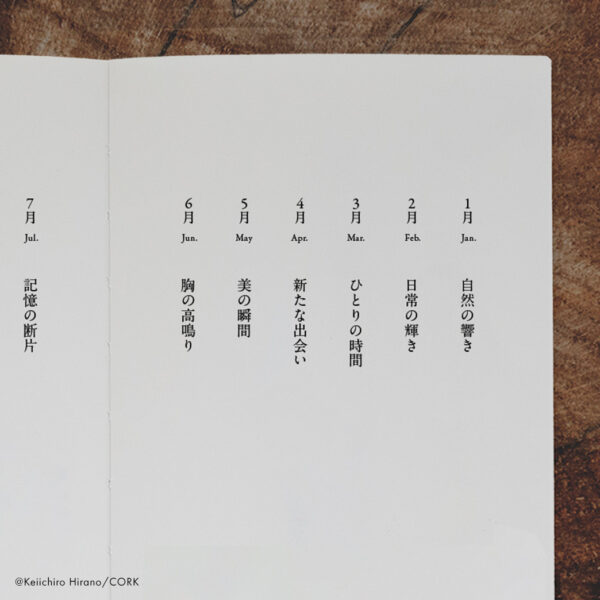 1月
Jan.
自然の響き
2月
Feb.
日常の輝き
3月
Mar.
ひとりの時間
4月
Apr.
新たな出会い
5月
May
美の瞬間
6月
Jun.
胸の高鳴り
7月
Jul.
記憶の断片
@Keiichiro Hirano/CORK